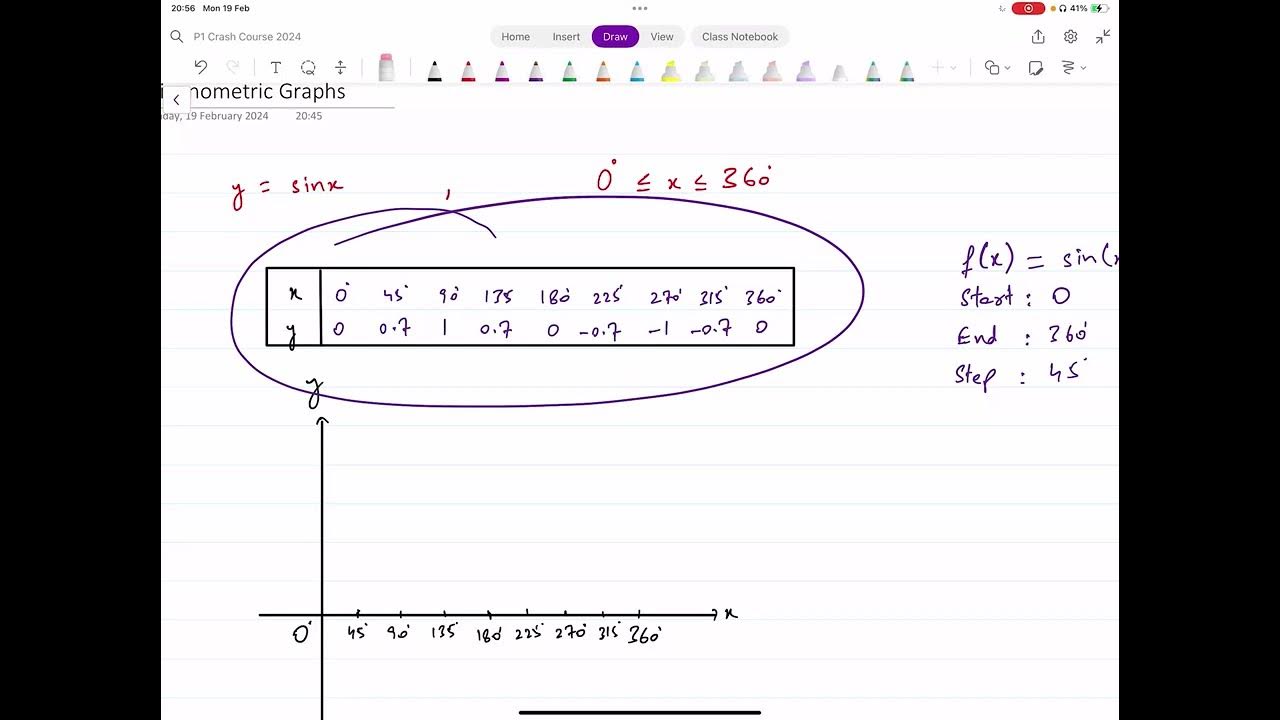 20:56 Mon 19 Feb
41%
P1 Crash Course 2024
Home Insert Draw View Class Notebook
nometric Graphs
day, 19 February 2024 20:45
y = sinx , 0° ≤ x ≤ 360°
x 0° 45° 90° 135 180° 225° 270° 315° 360°
y 0 0.7 1 0.7 0 -0.7 -1 -0.7 0
f(x) = sin(x
Start : 0
End : 360°
Step : 45°
y
x
0° 45° 90° 135° 180° 225° 270° 315° 360°